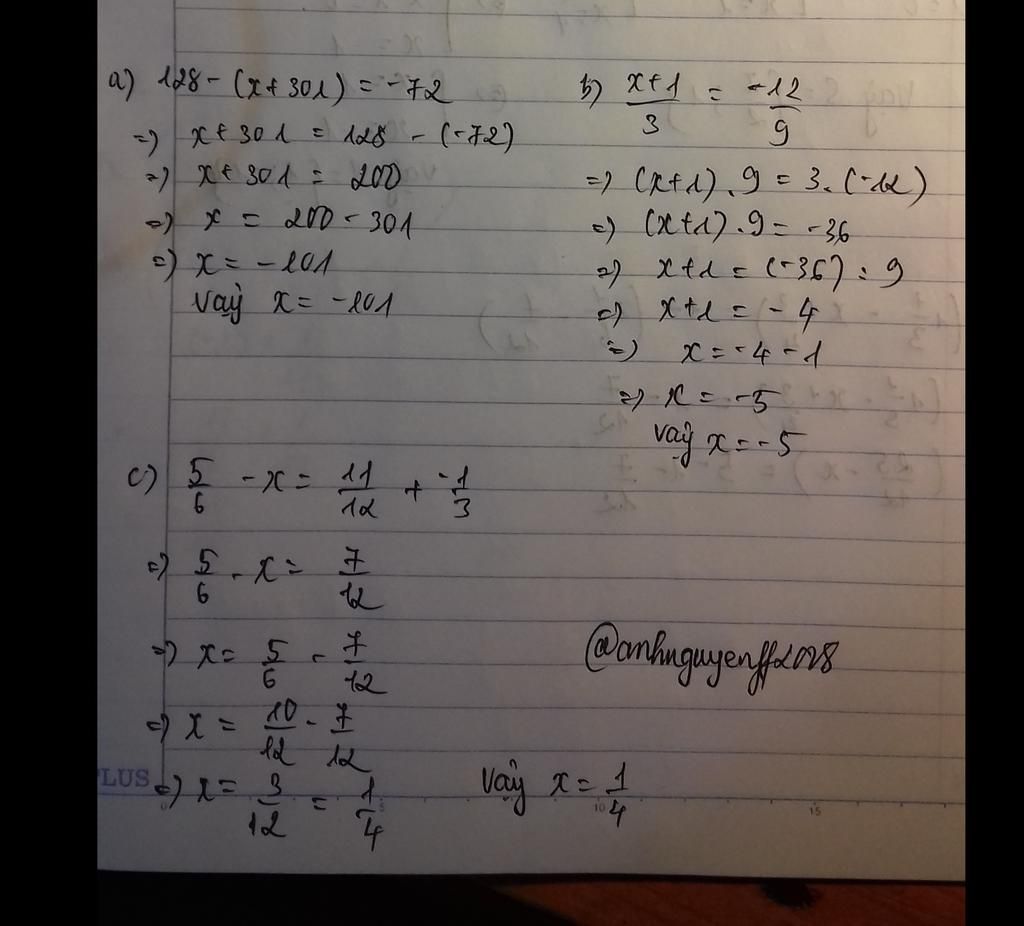 a) 128 - (x + 301) = -72
=) x + 301 = 128 - (-72)
=) x + 301 = 200
=) x = 200 - 301
=) x = -101
Vậy x = -101
b) x+1/3 = -12/9
=) (x+1) . 9 = 3. (-12)
=) (x+1) . 9 = -36
=) x+1 = (-36) : 9
=) x+1 = -4
=) x = -4 - 1
=) x = -5
Vậy x = -5
c) 5/6 - x = 11/12 + -1/3
=) 5/6 - x = 7/12
=) x = 5/6 - 7/12
=) x = 10/12 - 7/12
=) x = 3/12 = 1/4
Vậy x = 1/4
@anhnguyenff2008
PLUS
5 10 15